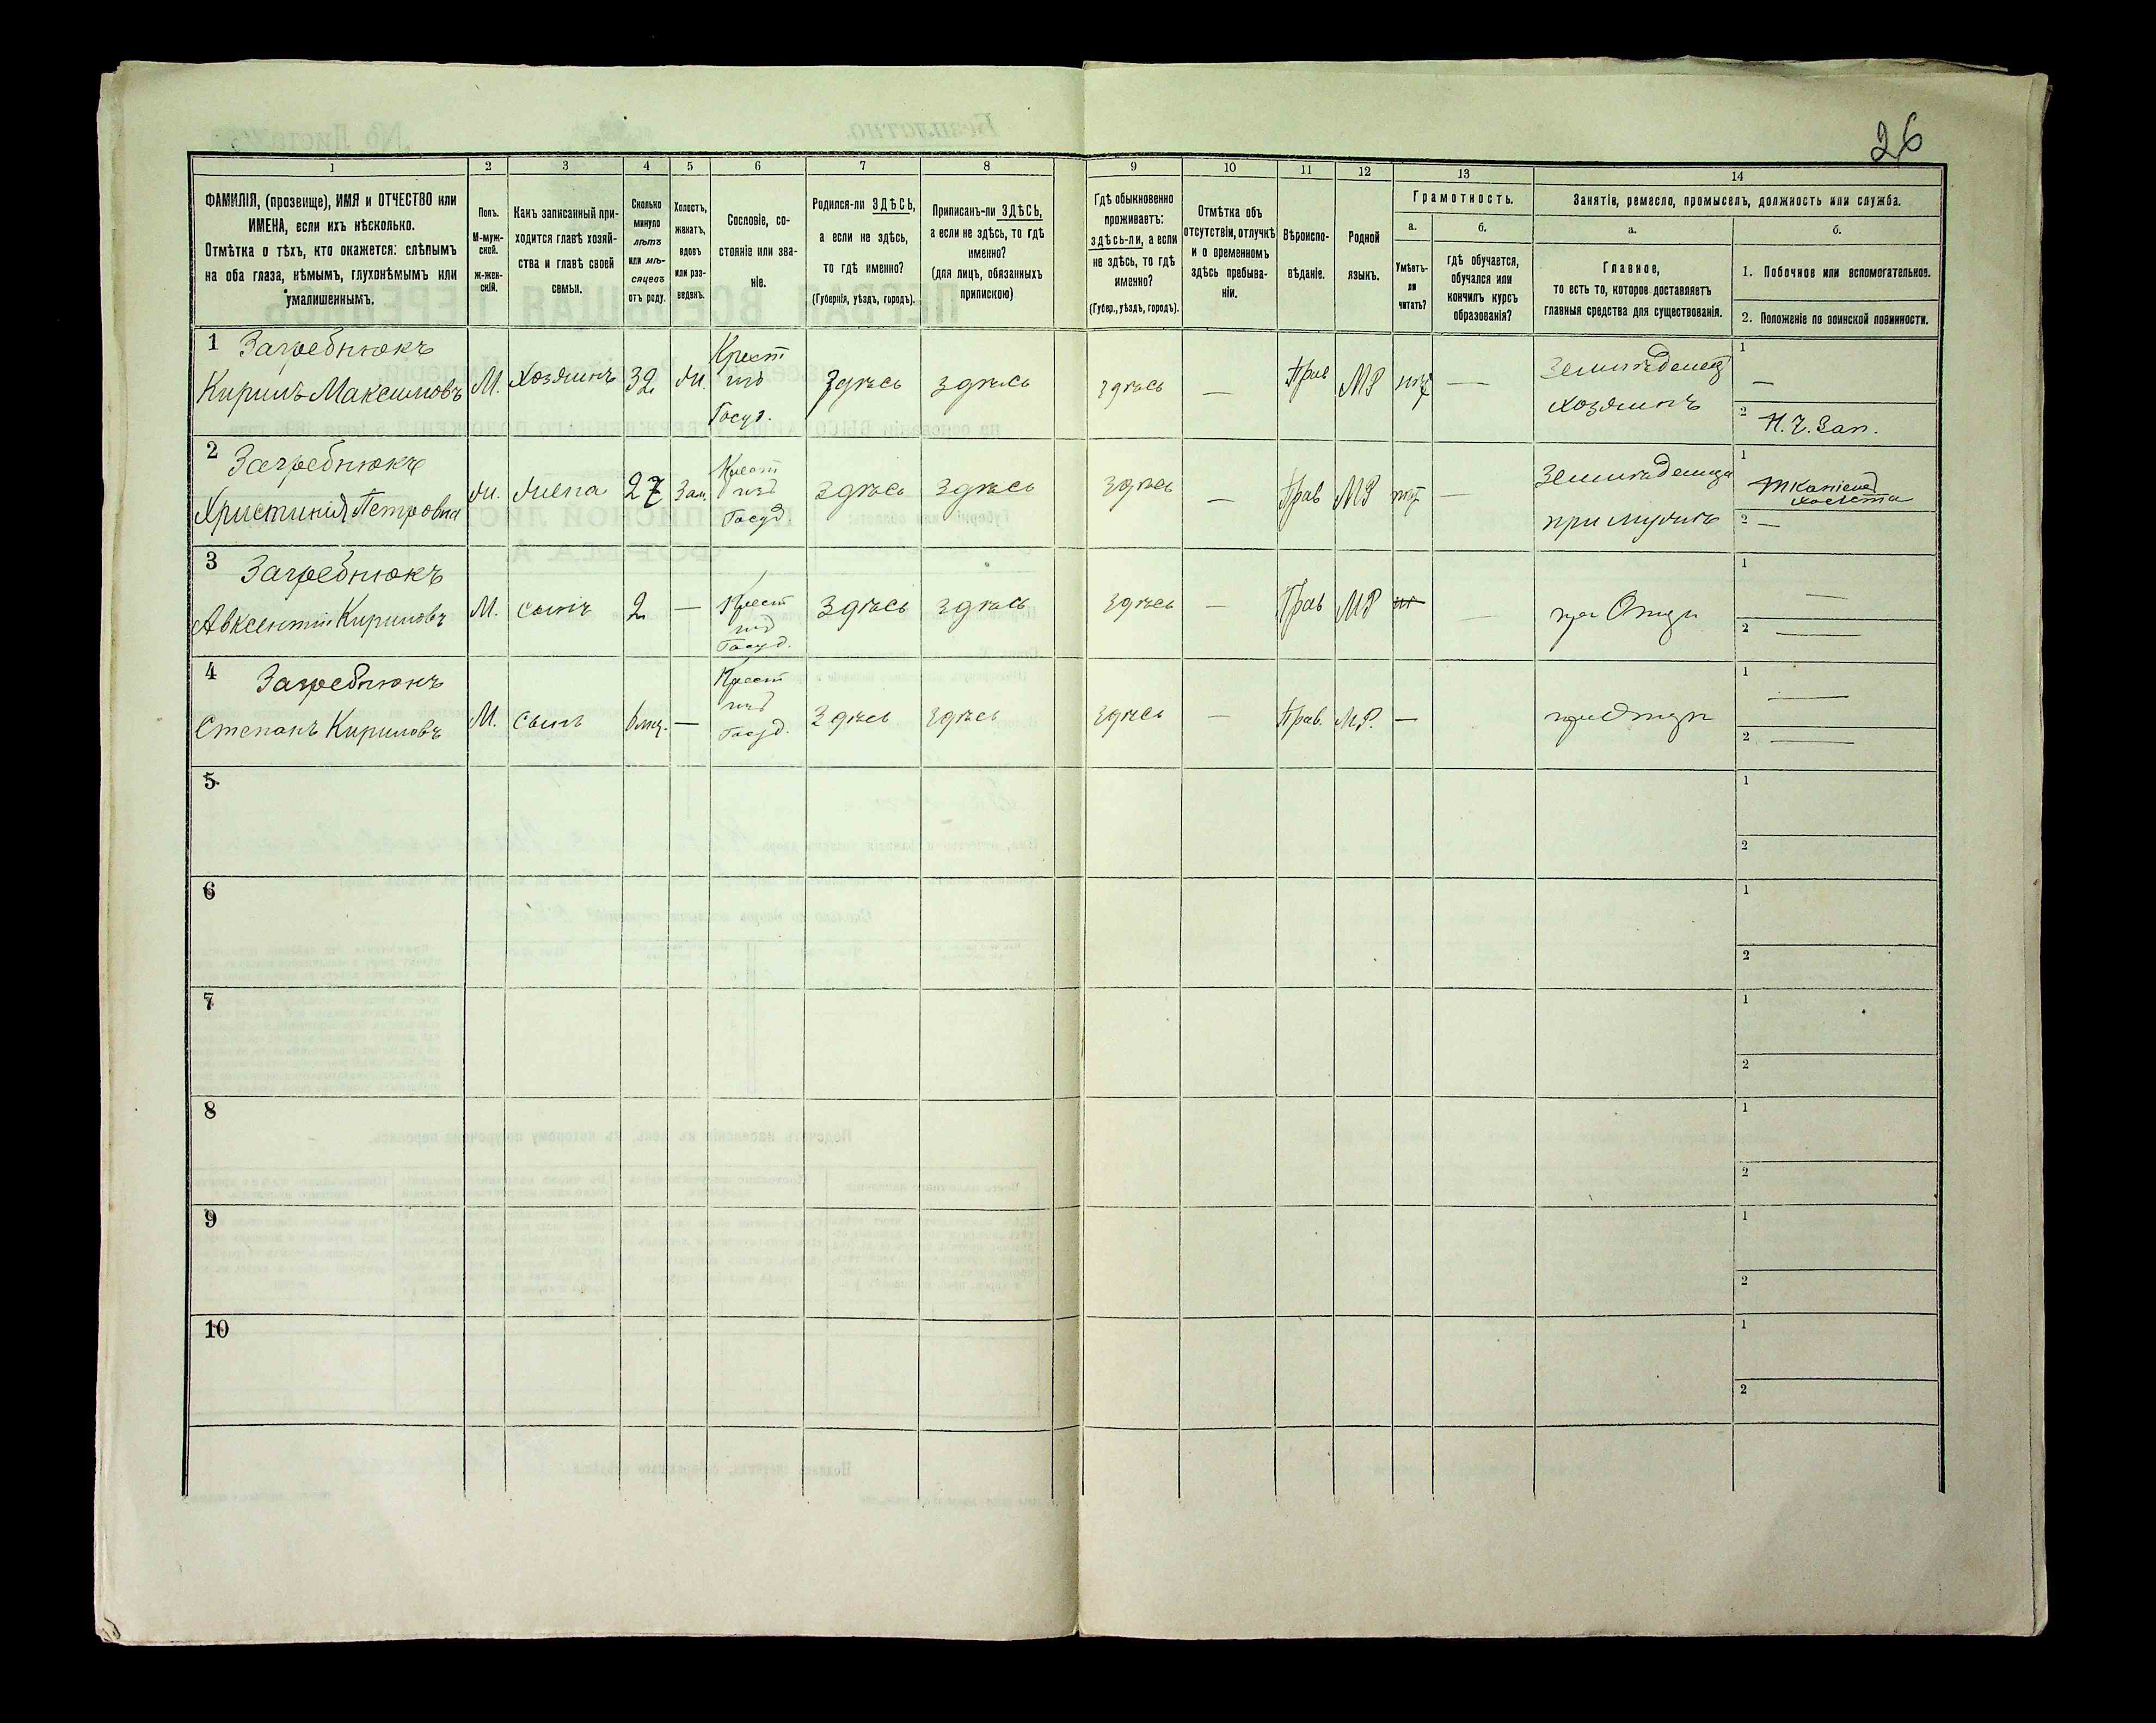 26
1
2
3
4
5
6
7
8
9
10
11
12
13
14
ФАМИЛІЯ, (прозвище), ИМЯ и ОТЧЕСТВО или
ИМЕНА, если ихъ нѣсколько.
Отмѣтка о тѣхъ, кто окажется: слѣпымъ
на оба глаза, нѣмымъ, глухонѣмымъ или
умалишеннымъ.
Полъ.
М-муж-
ской.
ж-жен-
скій.
Какъ записанный при-
ходится главѣ хозяй-
ства и главѣ своей
семьи.
Сколько
минуло
лѣтъ
или мѣ-
сяцевъ
отъ роду.
Холостъ,
женатъ,
вдовъ
или раз-
веденъ.
Сословіе, со-
стояніе или зва-
ніе.
Родился-ли ЗДѢСЬ,
а если не здѣсь,
то гдѣ именно?
(Губернія, уѣздъ, городъ).
Приписанъ-ли ЗДѢСЬ,
а если не здѣсь, то гдѣ
именно?
(для лицъ, обязанныхъ
припискою)
Гдѣ обыкновенно
проживаетъ:
здѣсь-ли, а если
не здѣсь, то гдѣ
именно?
(Губер., уѣздъ, городъ).
Отмѣтка объ
отсутствіи, отлучкѣ
и о временномъ
здѣсь пребыва-
ніи.
Вѣроиспо-
вѣданіе.
Родной
языкъ.
Грамотность.
а.
б.
Умѣетъ-
ли
читать?
гдѣ обучается,
обучался или
кончилъ курсъ
образованія?
Занятіе, ремесло, промыселъ, должность или служба.
а.
б.
Главное,
то есть то, которое доставляетъ
главныя средства для существованія.
1. Побочное или вспомогательное.
2. Положеніе по воинской повинности.
1 Загребнюкъ
Кирилъ Максимовъ М. хозяинъ 32 ж. Крест изъ Госуд. здѣсь здѣсь здѣсь — Прав МР — Земледелецъ хозяинъ
1 —
2 Н. Ч. Зап.
2 Загребнюкъ
Христинія Петровна ж. жена 27 Зам. Крест изъ Госуд. здѣсь здѣсь здѣсь — Прав МР — при мужѣ
1 холста
2 —
3 Загребнюкъ
Авксентій Кириловъ М. сынъ 2 — Крест изъ Госуд. здѣсь здѣсь здѣсь — Прав МР — при Отцѣ
1 —
2 —
4 Загребнюкъ
Степанъ Кириловъ М. сынъ — Крест изъ Госуд. здѣсь здѣсь здѣсь — Прав. МР. — при Отцѣ
1 —
2 —
5
1
2
6
1
2
7
1
2
8
1
2
9
1
2
10
1
2